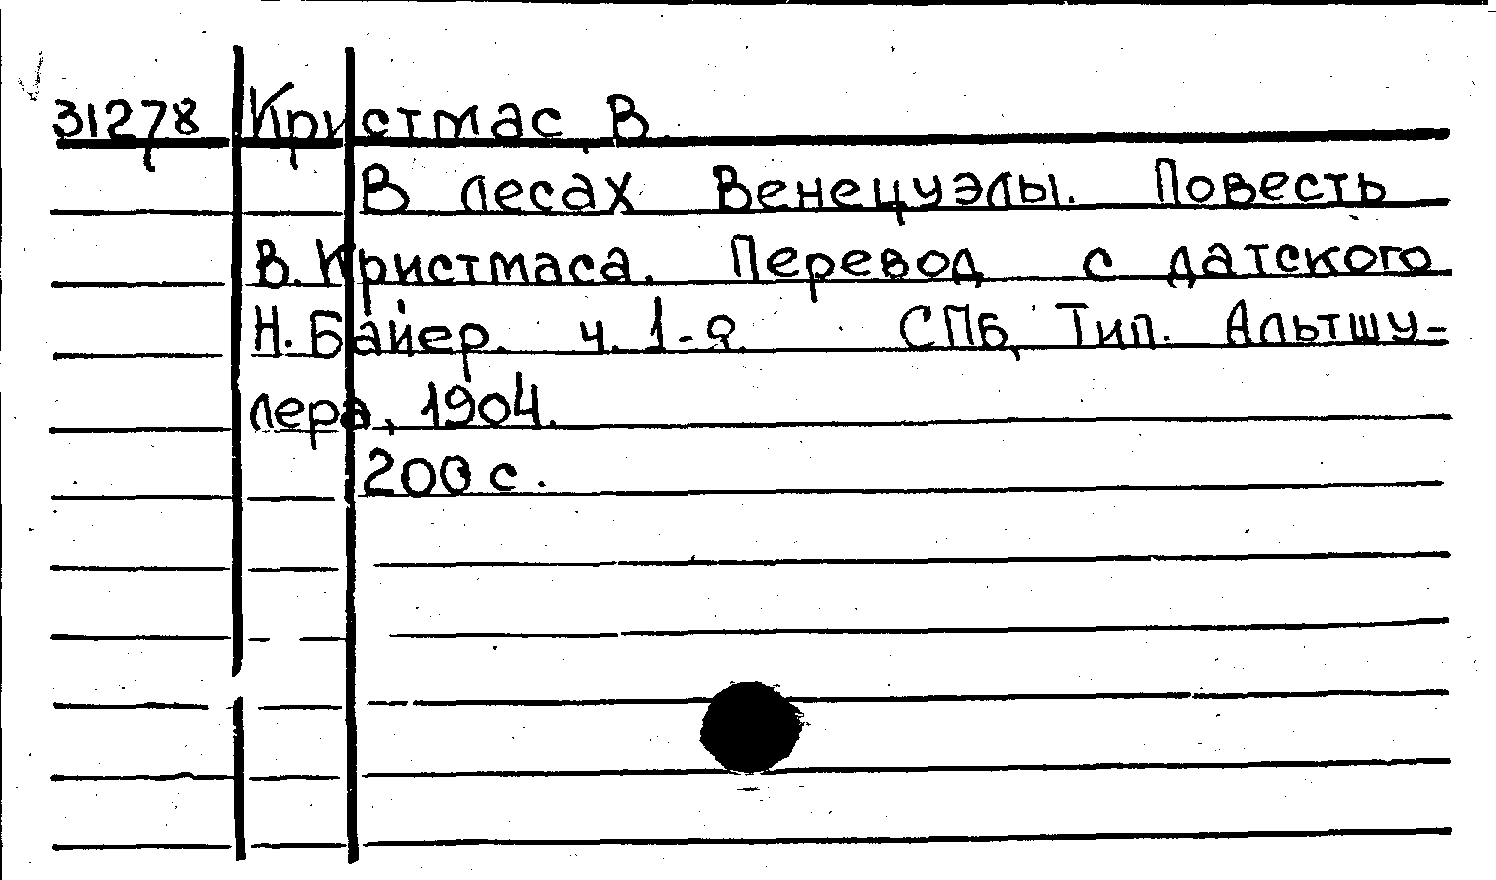 31278 Кристмас, В.
В лесах Венецуэлы. Повесть
В. Кристмаса. Перевод с датского
Н. Байер. ч. 1-я. СПб, Тип. Альтшу-
лера, 1904.
200 с.